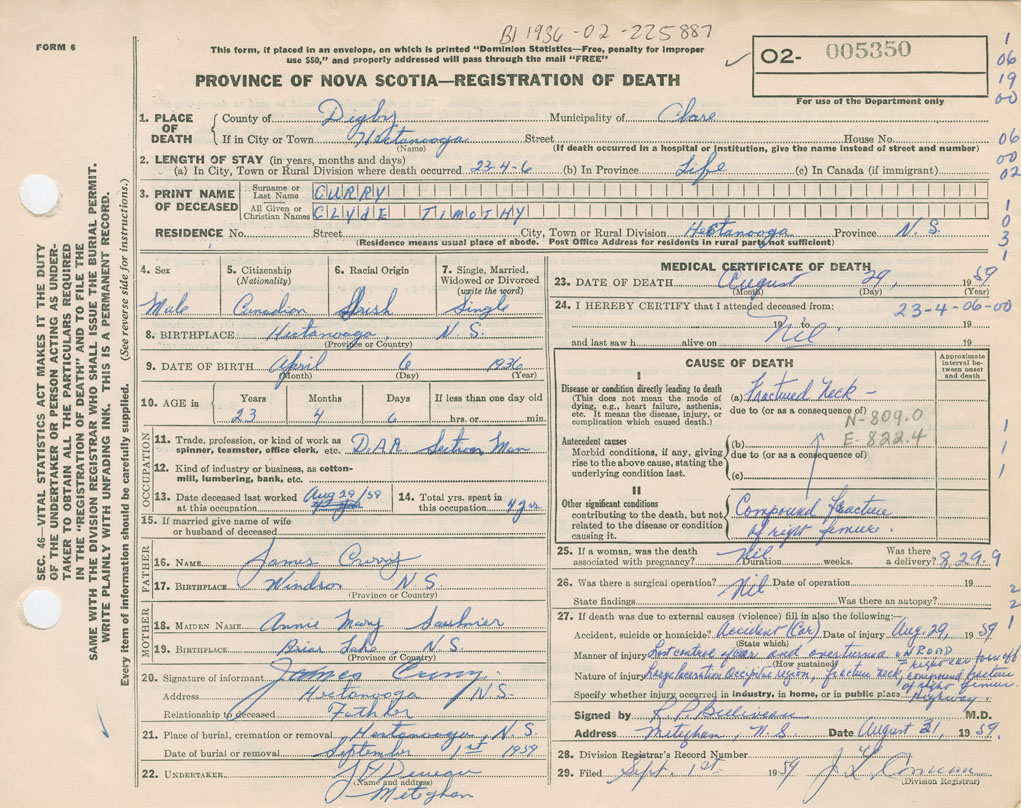 BI 1936-02-225887
FORM 6
This form, if placed in an envelope, on which is printed "Dominion Statistics—Free, penalty for improper
use $50," and properly addressed will pass through the mail "FREE"
PROVINCE OF NOVA SCOTIA—REGISTRATION OF DEATH
02- 005350
For use of the Department only
1
06
19
00
06
00
02
1
0
3
1
1. PLACE OF DEATH
County of Digby Municipality of Clare
If in City or Town Hectanooga Street House No.
(Name) (If death occurred in a hospital or institution, give the name instead of street and number)
2. LENGTH OF STAY (in years, months and days)
(a) In City, Town or Rural Division where death occurred 23-4-6 (b) In Province Life (c) In Canada (if immigrant)
3. PRINT NAME OF DECEASED
Surname or Last Name CURRY
All Given or Christian Names CLYDE TIMOTHY
RESIDENCE No. Street City, Town or Rural Division Hectanooga Province N.S.
(Residence means usual place of abode. Post Office Address for residents in rural parts not sufficient)
4. Sex 5. Citizenship (Nationality) 6. Racial Origin 7. Single, Married, Widowed or Divorced (write the word)
Male Canadian Irish Single
8. BIRTHPLACE Hectanooga, N.S.
(Province or Country)
9. DATE OF BIRTH April 6 1936
(Month) (Day) (Year)
10. AGE in Years Months Days If less than one day old
23 4 6 hrs. or min.
OCCUPATION
11. Trade, profession, or kind of work as
spinner, teamster, office clerk, etc. D.A.R. Section Man
12. Kind of industry or business, as cotton-
mill, lumbering, bank, etc.
13. Date deceased last worked at this occupation Aug 29/59
14. Total yrs. spent in this occupation 4 yrs
15. If married give name of wife
or husband of deceased
FATHER
16. NAME James Curry
17. BIRTHPLACE Windsor N.S.
(Province or Country)
MOTHER
18. MAIDEN NAME Annie Mary Saulnier
19. BIRTHPLACE Briar Lake, N.S.
(Province or Country)
20. Signature of informant James Curry
Address Hectanooga N.S.
Relationship to deceased Father
21. Place of burial, cremation or removal Hectanooga, N.S.
Date of burial or removal September 1st 1959
22. UNDERTAKER
(Name and address)
Meteghan
MEDICAL CERTIFICATE OF DEATH
23. DATE OF DEATH August 29, 1959
(Month) (Day) (Year)
24. I HEREBY CERTIFY that I attended deceased from: 23-4-06-00
19 to Nil 19
and last saw h alive on 19
CAUSE OF DEATH
Approximate interval between onset and death
I
Disease or condition directly leading to death
(This does not mean the mode of
dying, e.g., heart failure, asthenia,
etc. It means the disease, injury, or
complication which caused death.)
(a) Fractured Neck –
due to (or as a consequence of)
N-809.0
E-822.4
Antecedent causes
Morbid conditions, if any, giving
rise to the above cause, stating the
underlying condition last.
(b)
due to (or as a consequence of)
(c)
1
1
1
II
Other significant conditions
contributing to the death, but not
related to the disease or condition
causing it.
Compound fracture
of right femure.
25. If a woman, was the death associated with pregnancy? Nil Duration weeks. Was there a delivery? 829.9
26. Was there a surgical operation? Nil Date of operation 19
State findings Was there an autopsy?
2
2
1
27. If death was due to external causes (violence) fill in also the following:—
Accident, suicide or homicide? Accident (Car) Date of injury Aug. 29, 1959.
(State which)
Manner of injury Lost control of car and overturned N ROAD
(How sustained)
Nature of injury Large laceration occipital region, fracture neck, compound fracture
of right femur
Specify whether injury occurred in industry, in home, or in public place Highway
Signed by R. P. Belliveau M.D.
Address Meteghan, N.S. Date August 31, 1959.
28. Division Registrar's Record Number
29. Filed Sept. 1st 1959
(Division Registrar)
SEC. 46—VITAL STATISTICS ACT MAKES IT THE DUTY
OF THE UNDERTAKER OR PERSON ACTING AS UNDER-
TAKER TO OBTAIN ALL THE PARTICULARS REQUIRED
IN THE "REGISTRATION OF DEATH" AND TO FILE THE
SAME WITH THE DIVISION REGISTRAR WHO SHALL ISSUE THE BURIAL PERMIT.
WRITE PLAINLY WITH UNFADING INK. THIS IS A PERMANENT RECORD.
Every item of information should be carefully supplied. (See reverse side for instructions.)